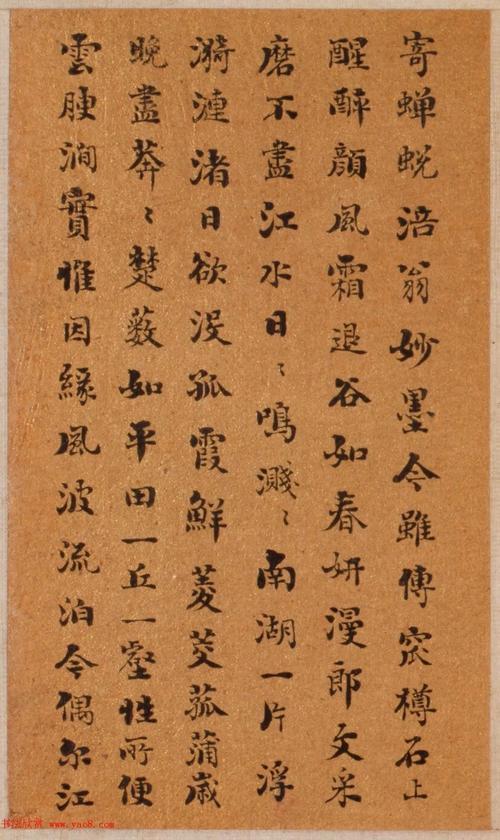 寄蝉蜕涪翁妙墨今雖傳窊樽石上
醒醉顔風霜退谷如春妍漫郎文采
磨不盡江水日〻鳴濺〻南湖一片浮
漪漣渚日欲没孤霞鮮菱芡菰蒲歲
晚盡莽〻楚薮如平田一丘一壑性所便
雲腴澗實惟因緣風波流泊今偶尔江
书法欣赏 www.yac8.com